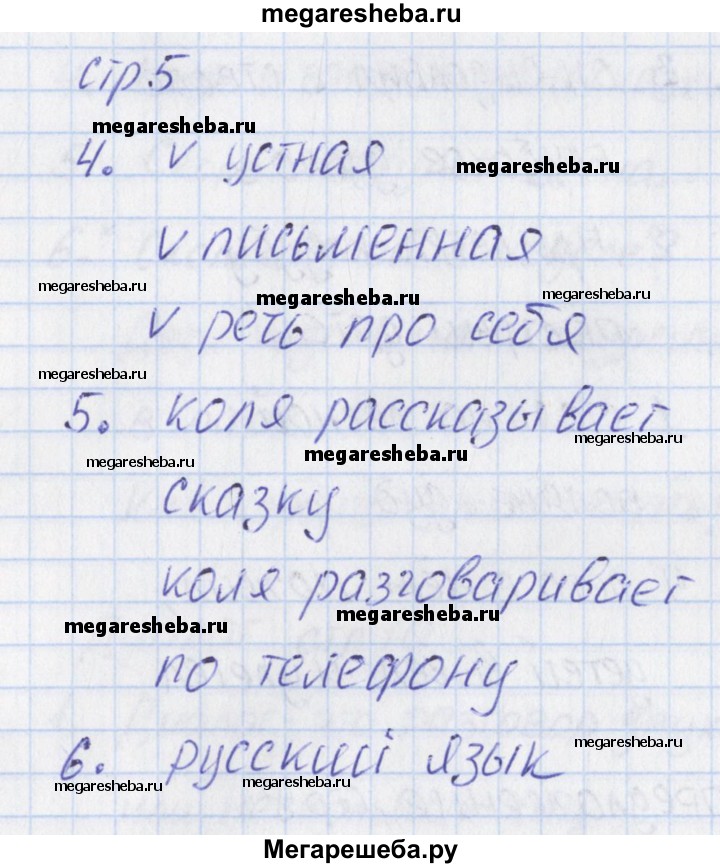 megaresheba.ru
стр.5
megaresheba.ru
4. v устная
megaresheba.ru
v письменная
megaresheba.ru
megaresheba.ru
megaresheba.ru
v речь про себя
megaresheba.ru
5. коля рассказывает
megaresheba.ru
megaresheba.ru
megaresheba.ru
сказку
коля разговаривает
megaresheba.ru
megaresheba.ru
по телефону
6. русский язык
megaresheba.ru
megaresheba.ru
megaresheba.ru
Мегарешеба.ру